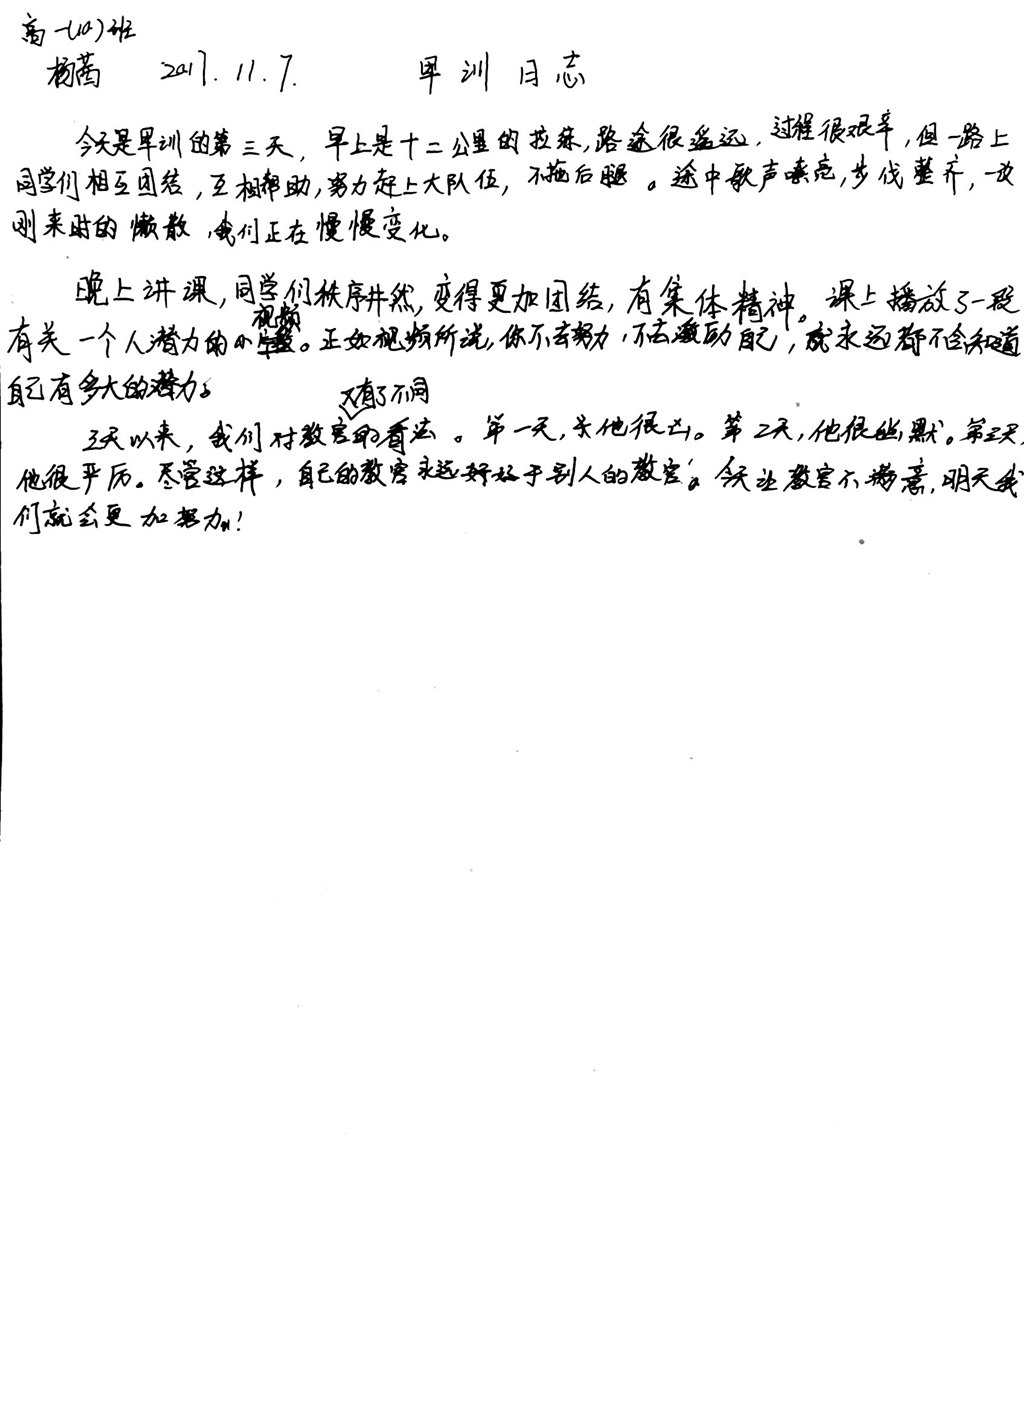 高一(10)班
杨茜 2017.11.7. 军训日志
今天是军训的第三天，早上是十二公里的拉练，路途很遥远，过程很艰辛，但一路上
同学们相互团结，互相帮助，努力赶上大队伍，不拖后腿。途中歌声嘹亮，步伐整齐，一改
刚来时的懒散，我们正在慢慢变化。
晚上讲课，同学们秩序井然，变得更加团结，有集体精神。课上播放了一段
有关一个人潜力的小视频。正如视频所说，你不去努力，不去激励自己，就永远都不会知道
自己有多大的潜力。
3天以来，我们对教官又有了不同的看法。第一天，他很凶。第2天，他很幽默。第三天，
他很严厉。尽管这样，自己的教官永远好于别人的教官。今天让教官不满意，明天我
们就会更加努力！